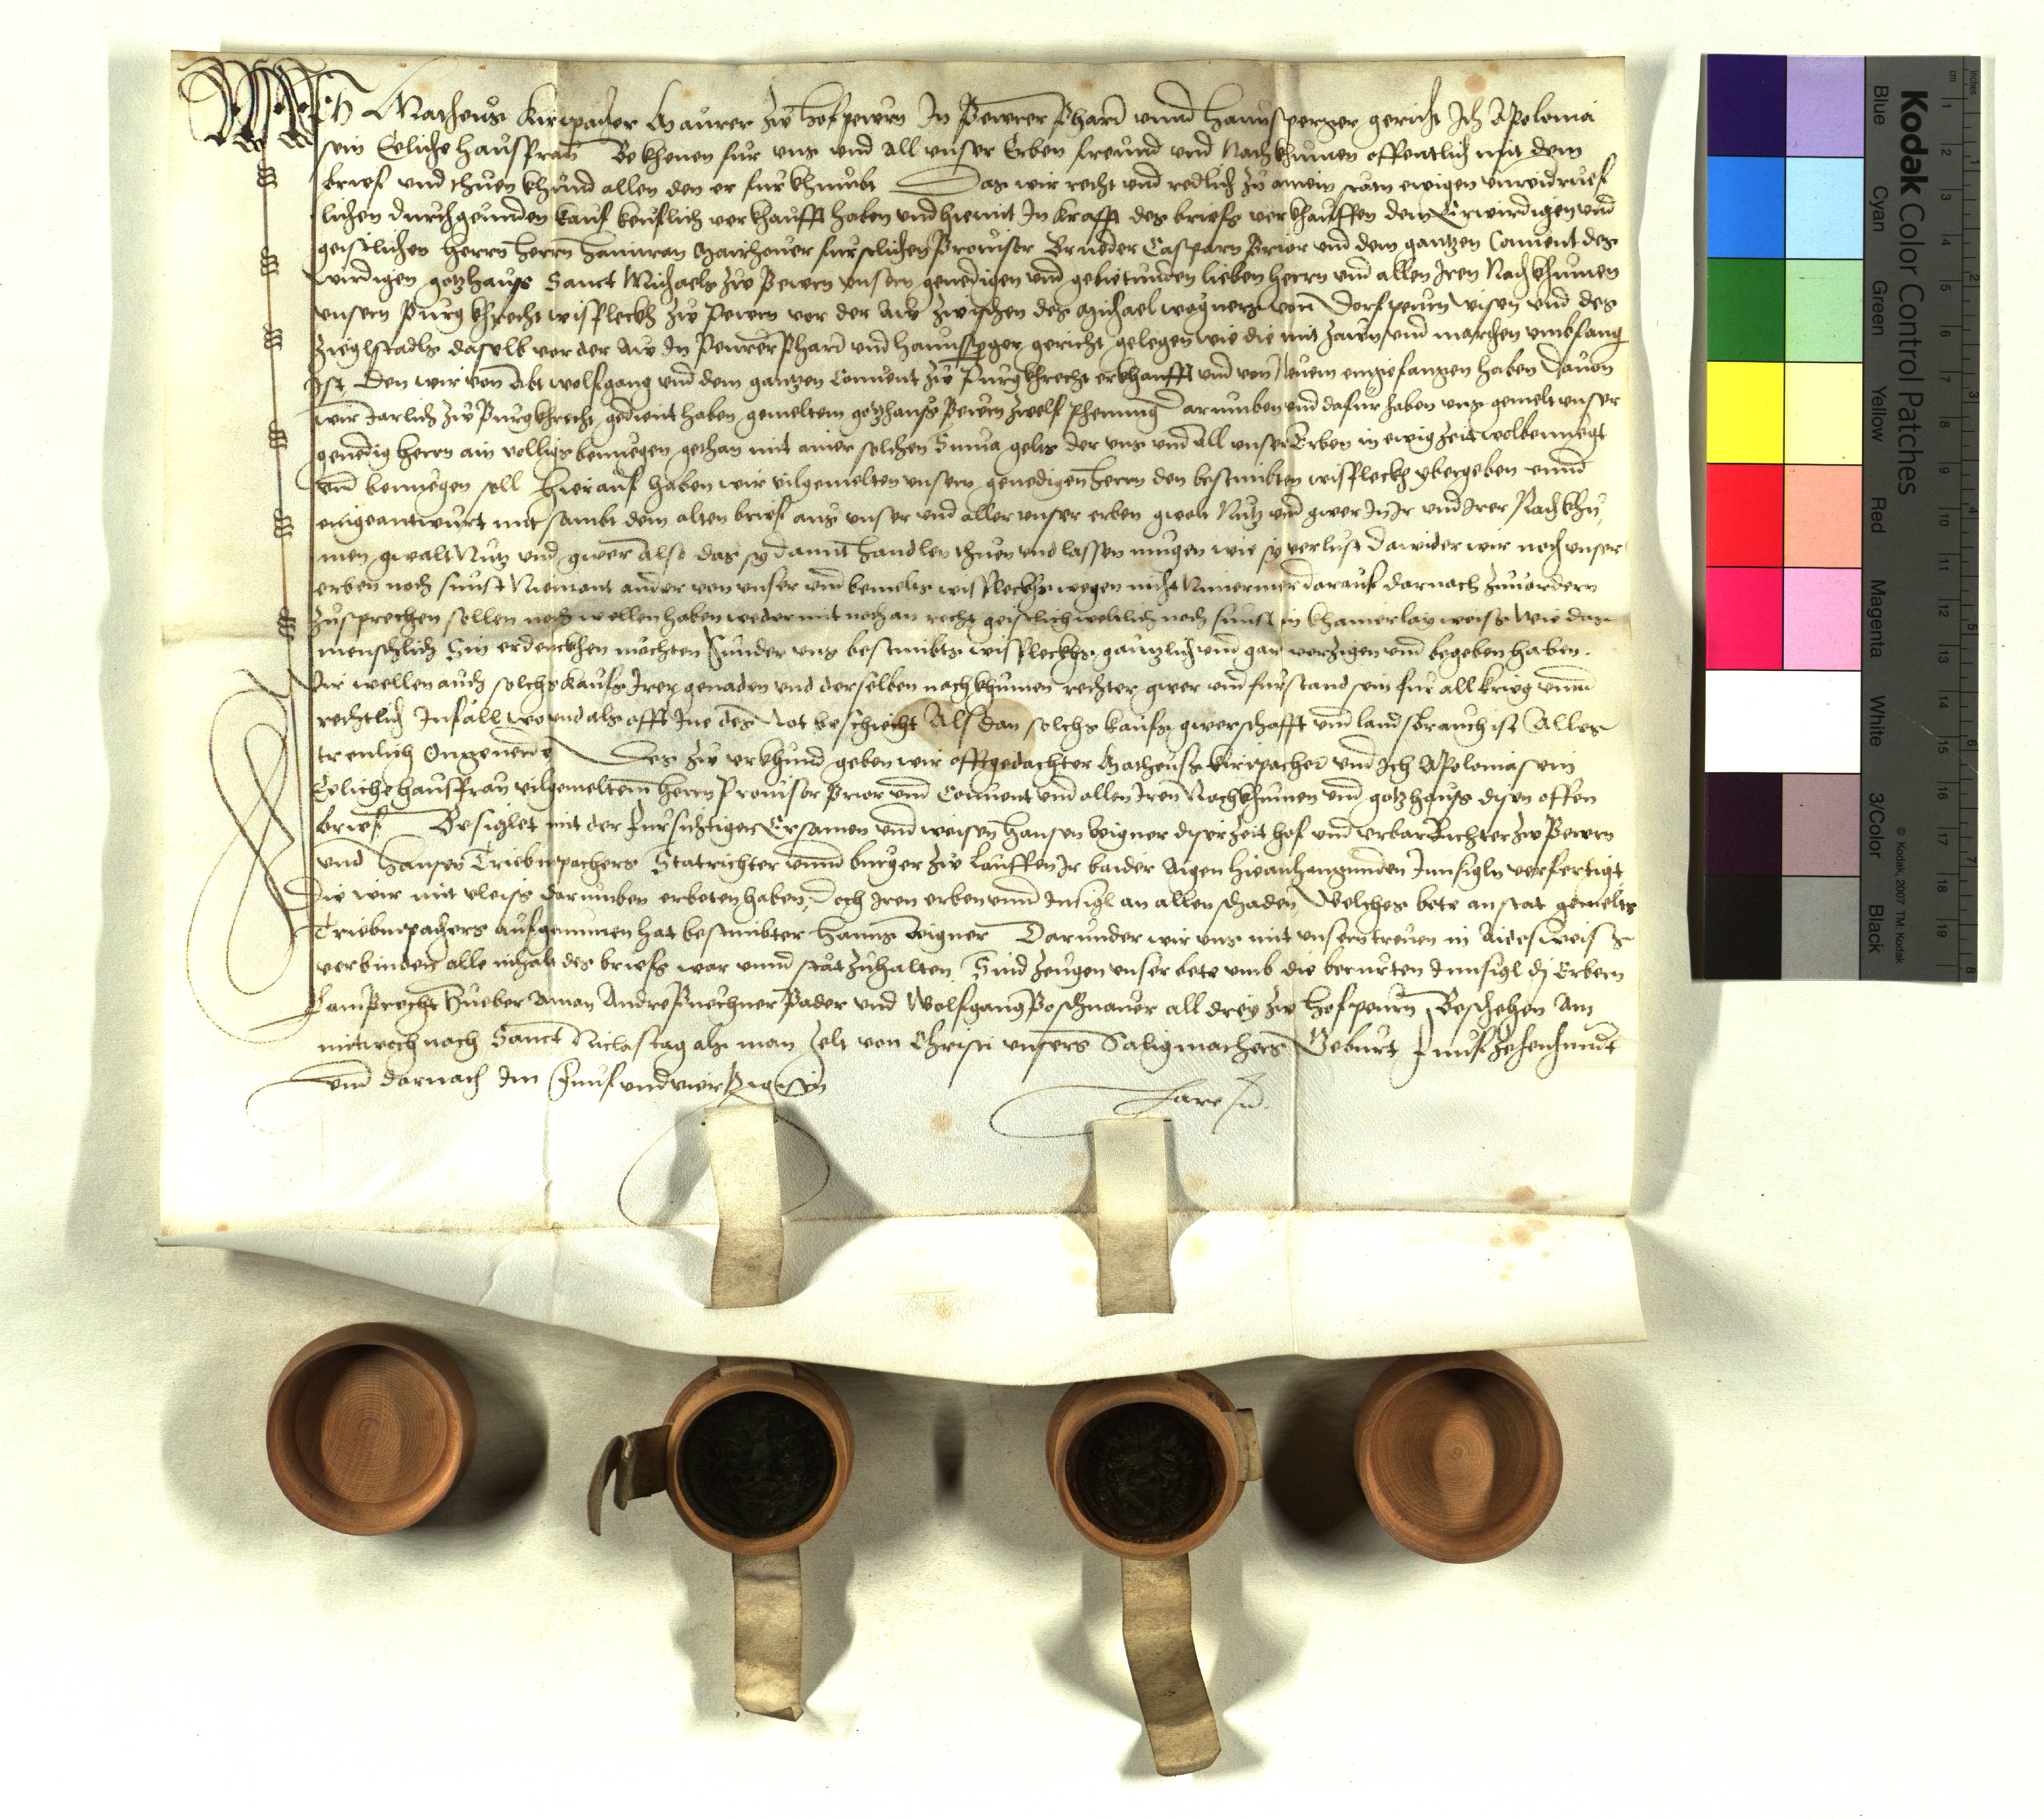 Ich Matheus Kirpacher Maurer zw Hofpewrn In Pewrer Pharr unnd Haunsperger gericht Ich Apolonia
sein Eeliche hausfrau Bekhenen für uns und all unser Erben freund und Nachkhumen offentlich mit dem
brief und thuen khund allen den er fürkhumbt Das wir recht und redlich zu ainem ewigen
lichen kauf keuflich verkhaufft haben und hiemit In krafft des briefs verkhauffen dem Erwirdigen und
geistlichen herrn herrn fürstlichen Provisor Brueder Casparn Prior und dem gantzen Convent des
wirdigen gotzhaus Sanct Michaels zw Pewrn unsern genedigen und gebietunden lieben herrn und allen Iren Nachkhumen
unsern Purgkhrecht wisfleckh zw Pewrn vor der Aw zwischen des Michael wagners von Dorfpeurn wisen und des
Zieglstadls daselb vor der Aw In Peurer Pharr und Haunsperger gericht gelegen wie die mit zaun und marchen umbfang
Ist Den wir von Abt wolfgang und dem gantzen Convent zw Purgkhrecht erkhaufft und von Neuem empfangen haben Davon
wir Jarlich zw Purgkhrecht gedient haben gemeltem gotzhaus Pewrn zwelf phening Darumben und dafür haben uns gemelt unser
genedig herrn ain volligs benuegen gethan mit ainer solchen Suma gelts der uns und all unser Erben in ewig zeit wolbenuegt
und benuegen soll Hierauf haben wir vilgemelten unsern genedigen herrn den bestimbten wisfleckh ybergeben unnd
eingeantwurt mit sambt dem alten brief aus unser und aller unser erben gwalt Nutz und gwer In Ir und Irer Nachkhu
men gwalt Nutz und gwer Also das sy damit handlen thuen und lassen mugen wie sy verlust Dawider wir noch unser
erben noch sunst Niemant ander von unser und bemelts wisfleckhs wegen nicht Nimermer darauf darnach zuvordern
zusprechen sollen noch wellen haben weder mit noch an recht geistlich weltlich noch sunst in khainerlay weiss Wie das
menschlich Sin erdenckhen mochten Sunder uns bestimbts wisfleckhs gantzlich und gar verzigen und begeben haben.
Wir wellen auch solchs kaufs Irer genaden und derselben nachkhumen rechter gwer und fürstand sein für all krieg unnd
rechtlich Infall wo und als offt Ine des Not beschiecht Als dan solchs kaufs gwerschafft und landsbrauch ist Alles
treulich Ongeverde Des zw urkhund geben wir offtgedachter Matheus Kirpacher und Ich Apolonia sein
Eeliche hausfrau vilgemeltem herrn Provisor Prior und Convent und allen Iren Nachkhumen und gotzhaus disen offen
brief Besiglet mit der fürsichtigen Ersamen und weisen Hansen Wigner diser zeit Hof und urbar Richter zw Pewrn
und Hansen Triebmpachers Statrichter unnd burger zw Lauffen Ir baider Aigen hieanhangunden Innsigln verfertigt
Die wir mit vleiss darumben erbeten haben, doch Iren erben und Insigl an allen schaden Welches bete an stat gemelts
Triebmpachers aufgenumen hat bestimbter Hanns Wigner Darunder wir uns mit unsern treuen in Aidesweiss
verbinden alle inhalt des briefs war unnd stät zuhalten Sind zeugen unser bete umb die berurten Innsigl dj Erbern
Lamprecht Hueber Aman Andre Puechner Pader und Wolfgang Poschnauer all drey zw Hofpeurn Beschehen Am
mitwoch nach Sanct Niclastag als man zelt von Christi unsers Saligmachers Geburt funfzehenhundert
und darnach Im funf und vierzigisten
Jare
Kodak Color Control Patches
Blue Cyan Green Yellow Red Magenta White 3/Color Black
© Kodak, 2007 TM: Kodak
inches 1 2 3 4 5 6 7 8
cm 1 2 3 4 5 6 7 8 9 10 11 12 13 14 15 16 17 18 19